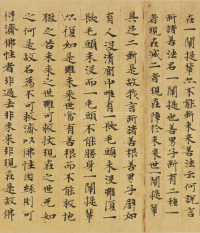 在一闡提輩亦不能斷未來善法云何說言
斷諸善法名一闡提也善男子斷有二種一
者現在滅二者現在障於未來世一闡提輩
具足二斷是故我言斷諸善根善男子譬如
有人沒清廁中唯有一髮毛頭未沒雖復一
髮毛頭未沒而一毛頭不能勝身一闡提輩
亦復如是雖未來世當有善根而不能救地
獄之苦未來之世雖可救拔現在之世無如
之何是故名為不可救濟以佛性因緣則可
得濟佛性者非過去非未來非現在是故佛